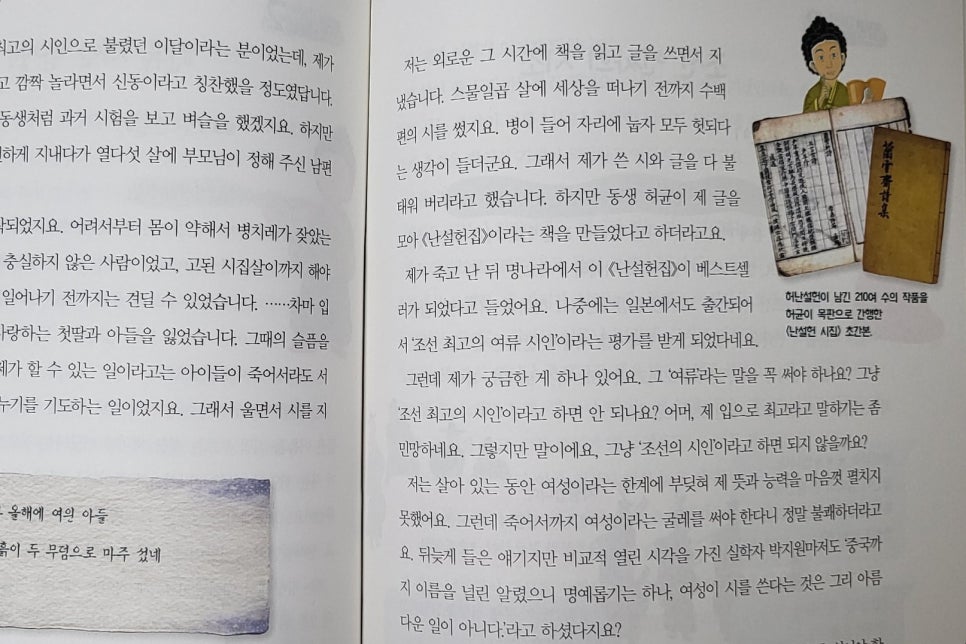 최고의 시인으로 불렸던 이달이라는 분이었는데, 제가
고 깜짝 놀라면서 신동이라고 칭찬했을 정도였답니다.
동생처럼 과거 시험을 보고 벼슬을 했겠지요. 하지만
하게 지내다가 열다섯 살에 부모님이 정해 주신 남편
작되었지요. 어려서부터 몸이 약해서 병치레가 잦았는
충실하지 않은 사람이었고, 고된 시집살이까지 해야
일어나기 전까지는 견딜 수 있었습니다. ……차마 입
사랑하는 첫딸과 아들을 잃었습니다. 그때의 슬픔을
제가 할 수 있는 일이라고는 아이들이 죽어서라도 서
누기를 기도하는 일이었지요. 그래서 울면서 시를 지
올해에 여읜 아들
흙이 두 무덤으로 마주 섰네
저는 외로운 그 시간에 책을 읽고 글을 쓰면서 지
냈습니다. 스물일곱 살에 세상을 떠나기 전까지 수백
편의 시를 썼지요. 병이 들어 자리에 눕자 모두 헛되다
는 생각이 들더군요. 그래서 제가 쓴 시와 글을 다 불
태워 버리라고 했습니다. 하지만 동생 허균이 제 글을
모아 《난설헌집》이라는 책을 만들었다고 하더라고요.
제가 죽고 난 뒤 명나라에서 이 《난설헌집》이 베스트셀
러가 되었다고 들었어요. 나중에는 일본에서도 출간되어
서 ‘조선 최고의 여류 시인’이라는 평가를 받게 되었다네요.
그런데 제가 궁금한 게 하나 있어요. 그 ‘여류’라는 말을 꼭 써야 하나요? 그냥
‘조선 최고의 시인’이라고 하면 안 되나요? 어머, 제 입으로 최고라고 말하기는 좀
민망하네요. 그렇지만 말이에요, 그냥 ‘조선의 시인’이라고 하면 되지 않을까요?
저는 살아 있는 동안 여성이라는 한계에 부딪혀 제 뜻과 능력을 마음껏 펼치지
못했어요. 그런데 죽어서까지 여성이라는 굴레를 써야 한다니 정말 불쾌하더라고
요. 뒤늦게 들은 얘기지만 비교적 열린 시각을 가진 실학자 박지원마저도 ‘중국까
지 이름을 널린 알렸으니 명예롭기는 하나, 여성이 시를 쓴다는 것은 그리 아름
다운 일이 아니다.’라고 하셨다지요?
허난설헌이 남긴 210여 수의 작품을
허균이 목판으로 간행한
《난설헌 시집》 초간본.
蘭雪齋詩集